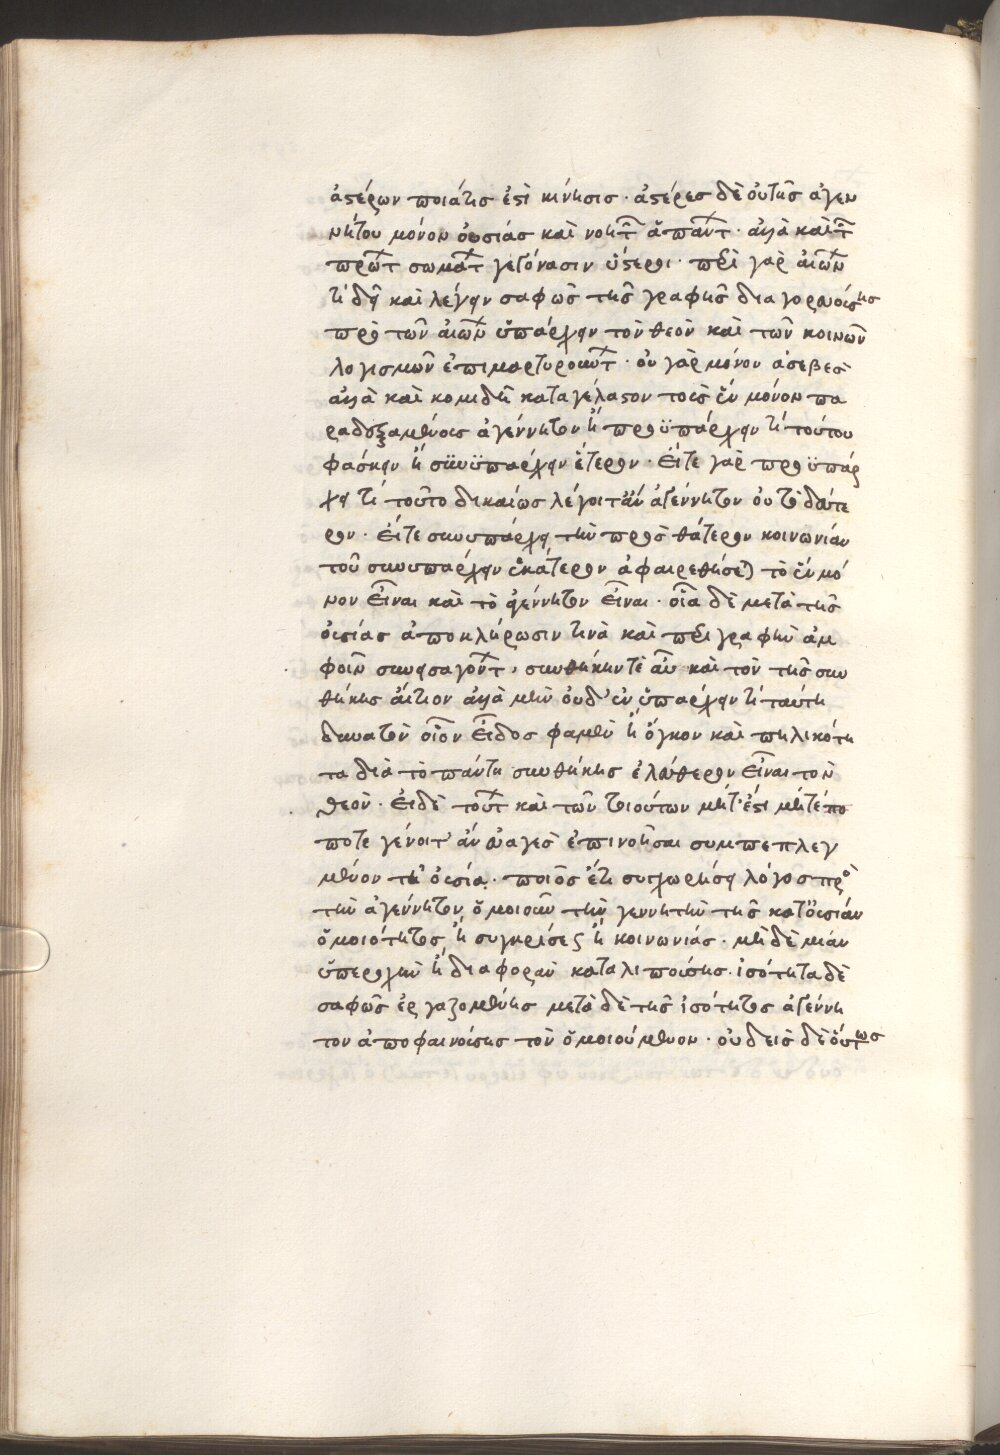 ἀστέρων ποιά τις ἐστὶ κίνησις· ἀστέρες δὲ οὐ τῆς ἀγεν
νήτου μόνον οὐσίας καὶ νοητῶν ἁπάντων· ἀλλὰ καὶ τῶν
πρώτων σωμάτων γεγόνασιν ὕστεροι· περὶ γὰρ αἰώνων
τί δεῖ καὶ λέγειν σαφῶς τῆς γραφῆς διαγορευούσης
πρὸ τῶν αἰώνων ὑπάρχειν τὸν θεὸν καὶ τῶν κοινῶν
λογισμῶν ἐπιμαρτυρούντων· οὐ γὰρ μόνον ἀσεβὲς
ἀλλὰ καὶ κομιδῆ καταγέλαστον τοῖς ἓν μόνον πα
ραδεξαμένοις ἀγέννητον ἢ προϋπάρχειν τί τούτου
φάσκειν ἢ συνϋπάρχειν ἕτερον· εἴτε γὰρ προϋπάρ
χει τί τοῦτο δικαίως λέγοιτ' ἂν ἀγέννητον οὐ τὸ δεύτε
ρον· εἴτε συνυπάρχει τῆ πρὸς θάτερον κοινωνία
τοῦ συνυπάρχειν ἑκάτερον ἀφαιρεθήσεται τὸ ἓν μό
νον εἶναι καὶ τὸ ἀγέννητον εἶναι· οἷα δὲ μετὰ τῆς
οὐσίας ἀποκλήρωσιν τινὰ καὶ περιγραφὴν ἀμ
φοῖν συνεισαγόντων, συνθήκην τὲ αὖ καὶ τὸν τῆς συν
θήκης αἴτιον ἀλλὰ μὴν οὐδ' ἐνυπάρχειν τί ταύτη
δυνατὸν οἷον εἶδος φαμὲν ἢ ὄγκον καὶ πηλικότη
τα διὰ τὸ πάντη συνθήκης ἐλεύθερον εἶναι τὸν
θεόν· εἰ δὲ τούτων καὶ τῶν τοιούτων μήτ' ἔστι μήτέ πο
ποτε γένοιτ' ἂν εὐαγὲς ἐπινοῆσαι συμπεπλεγ
μένον τῆ οὐσία· ποῖος ἔτι συγχωρήσει λόγος πρὸς
τὴν ἀγέννητον ὁμοιοῦν τὴν γεννητὴν τῆς κατ' οὐσίαν
ὁμοιότητος ἢ συγκρίσεως ἢ κοινωνίας· μὴ δὲ μίαν
ὑπεροχὴν ἢ διαφορὰν καταλιπούσης· ἰσότητα δὲ
σαφῶς ἐργαζομένης μετὰ δὲ τῆς ἰσότητος ἀγέννη
τον ἀποφαινούσης τὸν ὁμοιούμενον· οὐδεὶς δὲ οὕτως